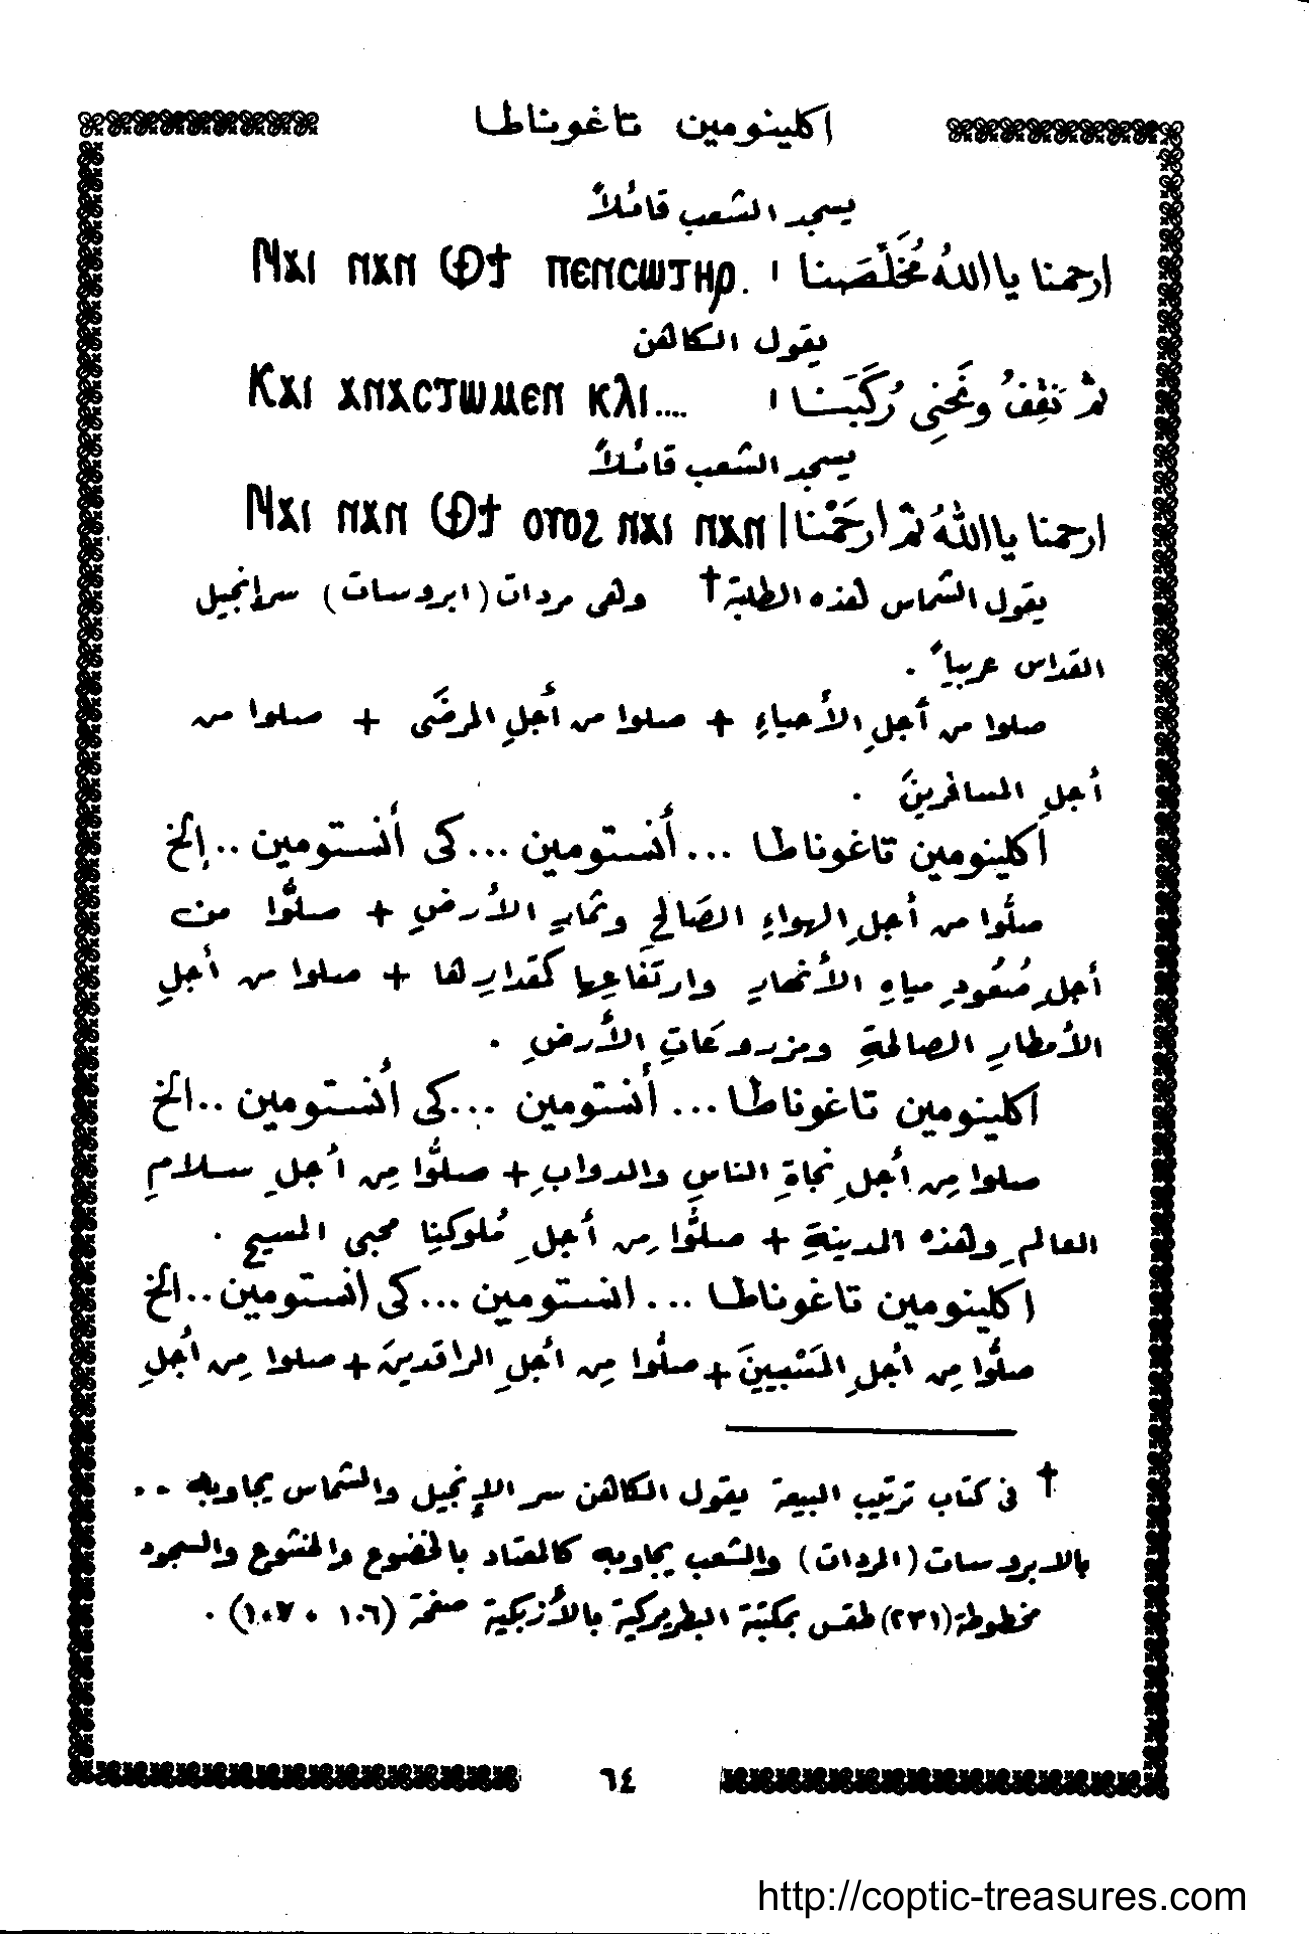 اكلينومين تاغوناطا
يسجد الشعب قائلاً
ارحمنا يا اللهُ مُخَلِّصَنا ׀ Ⲛⲁⲓ ⲛⲁⲛ Ⲫϯ ⲡⲉⲛⲥⲱⲧⲏⲣ.
يقول الكاهن
ثم نَقِفُ ونَحنِى رُكَبَنا ׀ Ⲕⲁⲓ ⲁⲛⲁⲥⲧⲱⲙⲉⲛ ⲕⲗⲓ....
يسجد الشعب قائلاً
ارحمنا يا اللهُ ثم ارحَمْنا | Ⲛⲁⲓ ⲛⲁⲛ Ⲫϯ ⲟⲩⲟϩ ⲛⲁⲓ ⲛⲁⲛ
يقول الشماس هذه الطلبة † وهى مردات (ابروسات) سر انجيل
القداس عربياً .
صلوا من أجلِ الأحياءِ + صلوا من أجلِ المرضَى + صلوا من
أجلِ المسافرينَ .
أكلينومين تاغوناطا ... أنستومين ... كى أنستومين .. إلخ
صلُّوا من أجلِ الهواءِ الصَالحِ وثمارِ الأرضِ + صلُّوا من
أجلِ صُعُودِ مياهِ الأنهارِ وارتفَاعِها كمقدارِها + صلوا من أجلِ
الأمطارِ الصالحةِ ومزروعَاتِ الأرضِ .
اكلينومين تاغوناطا ... أنستومين ... كى أنستومين .. الخ
صلوا مِن أجلِ نجاةِ الناسِ والدوابِ + صلُّوا مِن أجلِ سلامِ
العالمِ وهذه المدينةِ + صلُّوا مِن أجلِ مُلوكنِا محبى المسيحِ .
اكلينومين تاغوناطا ... انستومين ... كى انستومين .. الخ
صلُّوا مِن أجلِ المَسْبيينَ + صلُّوا مِن أجلِ الراقدينَ + صلوا مِن أجلِ
† فى كتاب ترتيب البيعة يقول الكاهن سر الإنجيل والشماس يجاوبه ..
بالابروسات (المردات) والشعب يجاوبه كالمعتاد بالخضوع والخشوع والسجود
مخطوطة (٢٣١) طقس بمكتبة البطريركية بالأزبكية صفحة (١٠٦ ، ١٠٧) .
٦٤
http://coptic-treasures.com